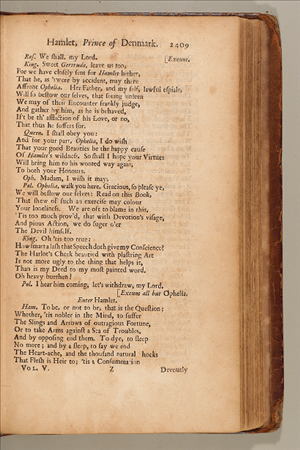 Hamlet, Prince of Denmark. 2409
Ros. We shall, my Lord. [Exeunt.
King. Sweet Gertrude, leave us too,
For we have closely sent for Hamlet hither,
That he, as 'twere by accident, may there
Affront Ophelia. Her Father, and my self, lawful espials,
Will so bestow our selves, that seeing unseen
We may of their Encounter frankly judge,
And gather by him, as he is behaved,
If't be th' affliction of his Love, or no,
That thus he suffers for.
Queen. I shall obey you:
And for your part, Ophelia, I do wish
That your good Beauties be the happy cause
Of Hamlet's wildness. So shall I hope your Virtues
Will bring him to his wonted way again,
To both your Honours.
Oph. Madam, I wish it may.
Pol. Ophelia, walk you here. Gracious, so please ye,
We will bestow our selves: Read on this Book,
That shew of such an exercise may colour
Your loneliness. We are oft to blame in this,
'Tis too much prov'd, that with Devotion's visage,
And pious Action, we do sugar o'er
The Devil himself.
King. Oh 'tis too true:
How smart a lash that Speech doth give my Conscience!
The Harlot's Cheek beautied with plastring Art
Is not more ugly to the thing that helps it,
Than is my Deed to my most painted word.
Oh heavy burthen!
Pol. I hear him coming, let's withdraw, my Lord.
[Exeunt all but Ophelia.
Enter Hamlet.
Ham. To be, or not to be, that is the Question:
Whether, 'tis nobler in the Mind, to suffer
The Slings and Arrows of outragious Fortune,
Or to take Arms against a Sea of Troubles,
And by opposing end them. To dye, to sleep
No more; and by a sleep, to say we end
The Heart-ache, and the thousand natural hocks
That Flesh is Heir to; 'tis a Consummation
VOL. V. Z Devoutly